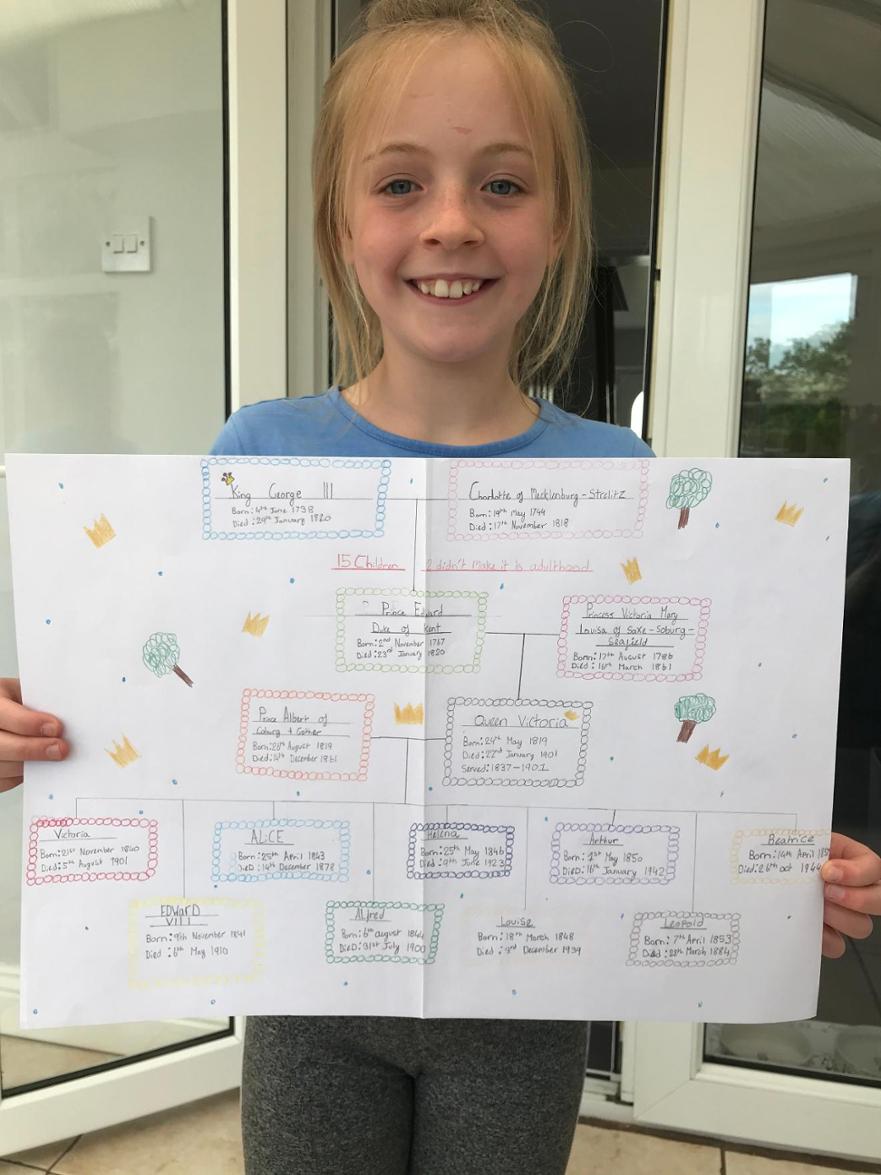 King George III
Born: 4th June 1738
Died: 29th January 1820
Charlotte of Mecklenburg-Strelitz
Born: 19th May 1744
Died: 17th November 1818
15 Children 2 didn't make it is adulthood
Prince Edward
Duke of Kent
Born: 2nd November 1767
Died: 23rd January 1820
Princess Victoria Mary
Louisa of Saxe-Soburg-
Seafield
Born: 17th August 1786
Died: 16th March 1861
Prince Albert of
Coburg + Gother
Born: 26th August 1819
Died: 14th December 1861
Queen Victoria
Born: 24th May 1819
Died: 22nd January 1901
Served: 1837-1901
Victoria
Born: 21st November 1840
Died: 5th August 1901
ALiCE
Born: 25th April 1843
Died: 14th December 1878
Helena
Born: 25th May 1846
Died: 9th June 1923
Arthur
Born: 1st May 1850
Died: 16th January 1942
Beatrice
Born: 14th April
Died: 26th oct 1944
EDWARD
VIII
Born: 9th November 1841
Died: 6th May 1910
Alfred
Born: 6th august 1844
Died: 31st July 1900
Louise
Born: 18th March 1848
Died: 3rd December 1939
Leopold
Born: 7th April 1853
Died: 28th March 1884